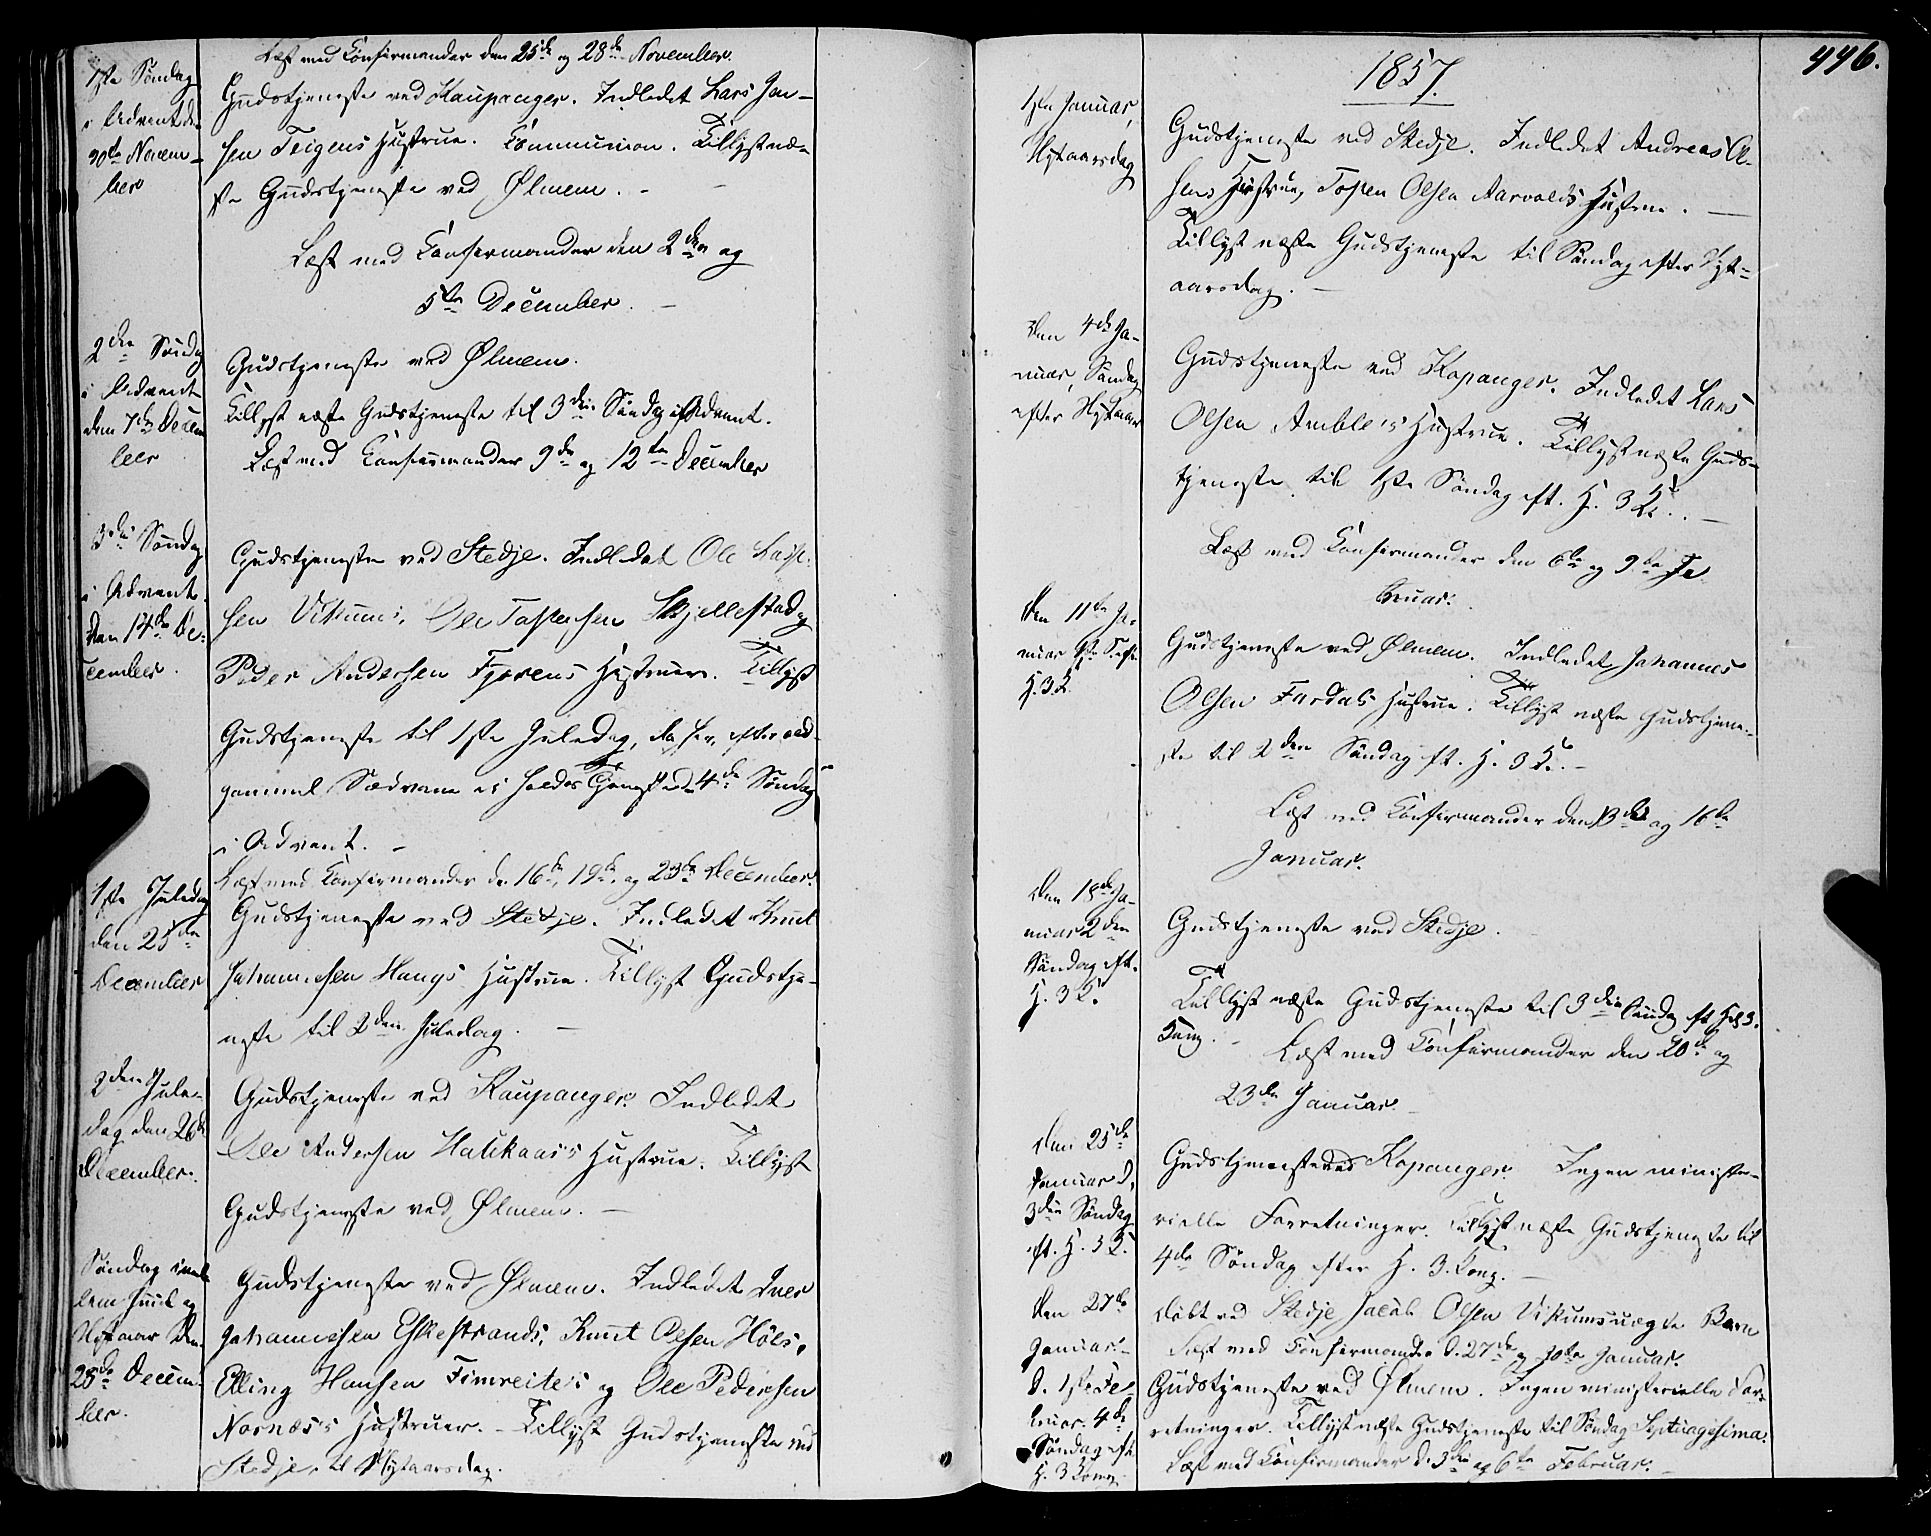 Læst med Confirmander den 25de og 28de November.
1ste Søndag
i Advent den
30te Novem-
ber
Gudstjeneste ved Kaupanger. Indledet Lars Jen-
sen Teigens Hustrue. Communion. Tillyst næ-
ste Gudstjeneste ved Ølmem. -
Læst med Confirmander den 2den og
5te December. -
2den Søndag
i Advent
den 7de Decem
ber
Gudstjeneste ved Ølmem.
Tillyst næste Gudstjeneste til 3die Søndag i Advent.
Læst med Confirmander 9de og 12te December
3die Søndag
i Advent.
den 14de De-
cember.
Gudstjeneste ved Stedje. Indledet Ole
sen Vikums, Ole Tostensen Skjellestad og
Peder Andersen Fjærens Hustruer. Tillyst
Gudstjeneste til 1ste Juledag, da her, efter æld-
gammel Sædvane ei holdes Tjeneste 4de Søndag
i Advent. -
Læst med Confirmander de 16de, 19de og 23de December.
1ste Juledag
den 25de
December
Gudstjeneste ved Stedje. Indledet Knut
Johannesen Haugs Hustrue. Tillyst Gudstje-
neste til 2den Juledag. -
2den Jule-
dag den 26de
December.
Gudstjeneste ved Kaupanger. Indledet
Ole Andersen Hatlekaas's Hustrue. Tillyst
Gudstjeneste ved Ølmem. -
Søndag imel-
lem Juul og
Nytaar den
28de Decem-
ber.
Gudstjeneste ved Ølmem. Indledet Iver
Johannesen Eskestrands, Knut Olsen Høls,
Elling Hansen Fimreite's og Ole Pedersen
Nornæs's Hustruer. - Tillyst Gudstjeneste ved
Stedje til Nytaarsdag.
446.
1857.
1ste Januar,
Nytaarsdag
Gudstjeneste ved Stedje. Indledet Andreas Ol-
sens Hustrue, Tosten Olsen Aarvolds Hustrue. -
Tillyst næste Gudstjeneste til Søndag efter Nyt-
aarsdag. -
Den 4de Ja-
nuar, Søndag
efter Nytaar
Gudstjeneste ved Kopanger. Indledet Lars
Olsen Amble's Hustrue. Tillyst næste Guds-
tjeneste til 1ste Søndag eft. H. 3 K. -
Læst med Confirmander den 6te og 9de Ja
nuar.
Den 11te Ja-
nuar 1ste S. eft.
H. 3 K.
Gudstjeneste ved Ølmem. Indledet Johannes
Olsen Fardals Hustrue. Tillyst næste Gudstjene-
ste til 2den Søndag ft. H. 3 K. -
Læst med Confirmander den 13de og 16de
Januar.
Den 18de Ja-
nuar 2den
Søndag eft.
H. 3 K.
Gudstjeneste ved Stedje.
Tillyst næste Gudstjeneste til 3die Søndag ft. Hel. 3.
Kong. -
Læst med Confirmander den 20de og
23de Januar. -
Den 25de
Januar d,
3die Søndag
ft. H. 3 K.
Gudstjeneste ved Kopanger. Ingen ministe-
rielle Forretninger. Tillyst næste Gudstjeneste til
4de Søndag efter H. 3. Kong. -
Den 27de
Januar.
Døbt ved Stedje Jacob Olsen Vikums uægte Barn
Læst med Confirmander d. 27de og 30te Januar.
D. 1ste Fe-
bruar. 4de
Søndag eft.
H. 3 Kong.
Gudstjeneste ved Ølmem. Ingen ministerielle For-
retninger. Tillyst næste Gudstjeneste til Søndag Septuagesima.
Læst med Confirmander d. 3die og 6te Februar. -